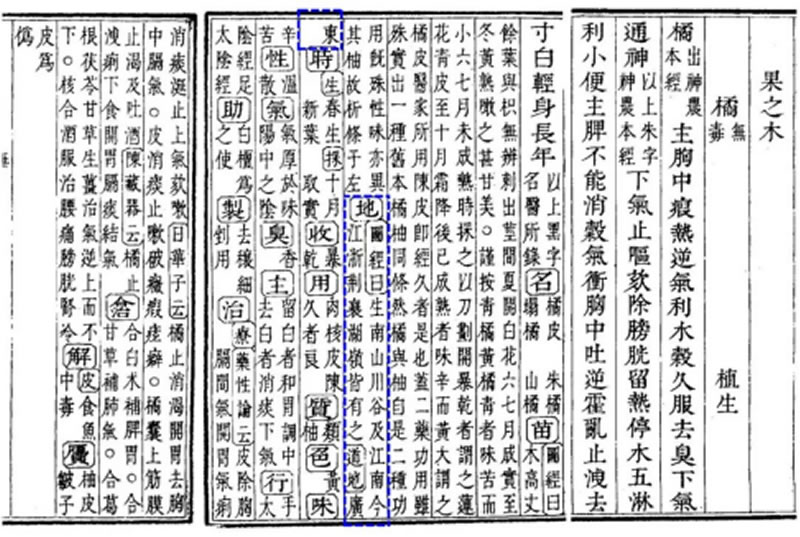 果之木
橘 無毒 植生
橘 出神農本經 主胸中瘕熱逆氣利水穀久服去臭下氣
通神 以上朱字神農本經 下氣止嘔欬除膀胱留熱停水五淋
利小便主脾不能消穀氣衝胸中吐逆霍亂止洩去
寸白輕身長年 以上黑字名醫所錄 名 橘皮 朱橘 塌橘 山橘 苗 圖經曰木高丈
餘葉與枳無辨刺出莖間夏開白花六七月成實至
冬黃熟噉之甚甘美○謹按青橘黃橘青者味苦而
小六七月未成熟時採之以刀劃開暴乾者謂之蓮
花青皮至十月霜降後已成熟者味辛而黃大謂之
橘皮醫家所用陳皮即經久者是也蓋二藥功用雖
殊實出一種舊本橘柚同條然橘與柚自是二種功
用既殊性味亦異其柚故析條于左 地 圖經曰生南山川谷及江南今江浙荊襄湖嶺皆有之道地廣
東 時 生春生新葉採十月取實 收 暴乾 用 肉核皮陳久者良 質 類柚 色 黃 味
辛苦 性 溫散 氣 氣厚於味陽中之陰 臭 香 主 留白者和胃調中去白者消痰下氣 行 手太
陰經足太陰經 助 白檀為之使 製 去穰細剉用 治 療藥性論云皮除胸膈間氣開胃氣痢
消痰涎止上氣欬嗽日華子云橘止消渴開胃去胸
中膈氣○皮消痰止嗽破癥瘕痃癖○橘囊上筋膜
止渴及吐酒陳藏器云橘止洩痢下食開胃膈痰結氣 合 合白朮補脾胃○合甘草補肺氣○合葛
根茯苓甘草生薑治氣逆上而不下○核合酒服治腰痛膀胱腎冷 解 皮食魚中毒 贋 柚皮皺子
皮為偽